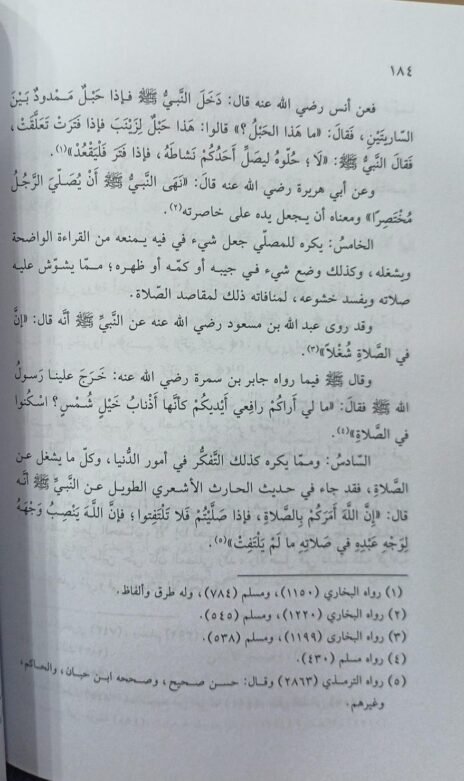 ١٨٤
فعن أنس رضي الله عنه قال: دَخَلَ النَّبيُّ ﷺ فـإذا حَبْلٌ مَـمْدودٌ بَيْنَ
السّاريتَيْنِ، فَقالَ: «ما هَذا الحَبْلُ؟» قالوا: هَذا حَبْلٌ لِزَيْنَبَ فإذا فَتَرَتْ تَعَلَّقَتْ،
فَقالَ النَّبيُّ ﷺ: «لَا؛ حُلّوهُ ليصَلِّ أَحَدُكُمْ نَشاطَهُ، فإذا فَتَرَ فَلْيَقْعُدْ»(١).
وعن أبي هريرة رضي الله عنه قالَ: «نَهَى النَّبيُّ ﷺ أَنْ يُصَلّيَ الرَّجُلُ
مُخْتَصِرًا» ومعناه أن يـجعل يده على خاصرته(٢).
الخامسُ: يكره للمصلّي جعل شيء في فيه يـمنعه من القراءة الواضحة
ويشغله، وكذلك وضع شيء فـي جيبه أو كمّه أو ظهره؛ مـمّا يشوّش عليه
صلاته ويفسد خشوعه، لـمنافاته ذلك لـمقاصد الصّلاة.
وقد روى عبد الله بن مسعود رضي الله عنه عن النَّبيِّ ﷺ أنَّه قال: «إنَّ
في الصَّلاةِ شُغْلاً»(٣).
وقال ﷺ فيما رواه جابر بن سمرة رضي الله عنه: خَرَجَ علينـا رَسولُ
الله ﷺ فقالَ: «ما لي أَراكُمْ رافِعي أَيْديكُمْ كأنَّها أَذْنابُ خَيْلٍ شُمْسٍ؟ اسْكُنوا
في الصَّلاةِ»(٤).
السّادسُ: ومـمّا يكره كذلك التّفكُّر في أمور الدُّنيا، وكلّ ما يشغل عن
الصَّلاة، فقد جاء في حديث الحارث الأشعري الطويل عـن النَّبيِّ ﷺ أنّه
قال: «إنَّ اللَّهَ أَمَرَكُمْ بِالصَّلاةِ، فإذا صَلَّيْتُمْ فَلا تَلْتَفِتوا؛ فإنَّ اللَّـهَ يَنْصِبُ وَجْهَهُ
لِوَجْهِ عَبْدِهِ في صَلاتِهِ ما لَمْ يَلْتَفِتْ»(٥).
(١) رواه البخاري (١١٥٠)، ومسلم (٧٨٤)، وله طرق وألفاظ.
(٢) رواه البخاري (١٢٢٠)، ومسلم (٥٤٥).
(٣) رواه البخارى (١١٩٩)، ومسلم (٥٣٨).
(٤) رواه مسلم (٤٣٠).
(٥) رواه الترمذي (٢٨٦٣) وقـال: حسـن صحيح، وصححه ابـن حبـان، والحـاكم،
وغيرهم.